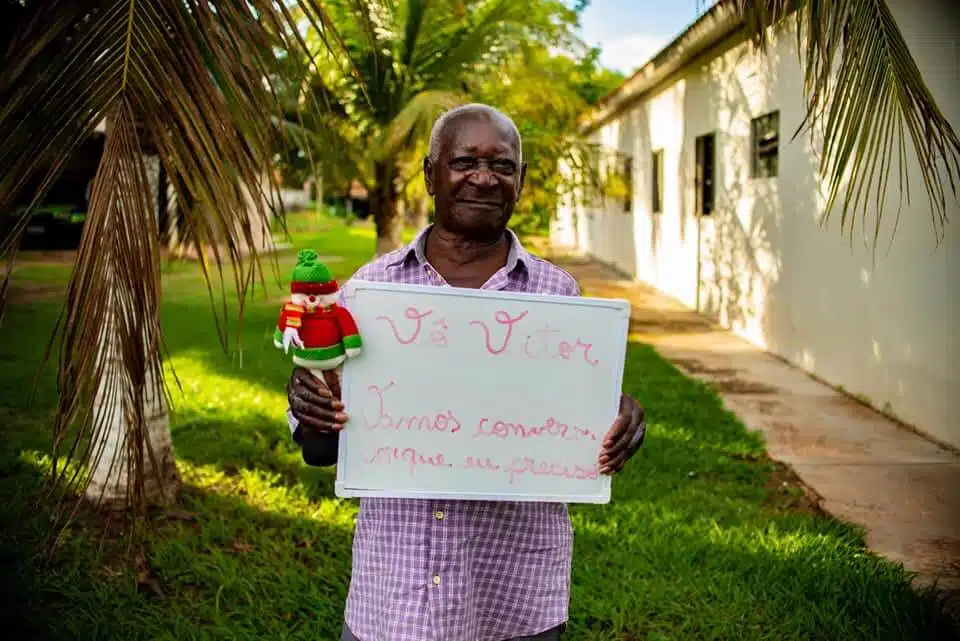 Vô Vitor
Vamos conversar
que eu preciso